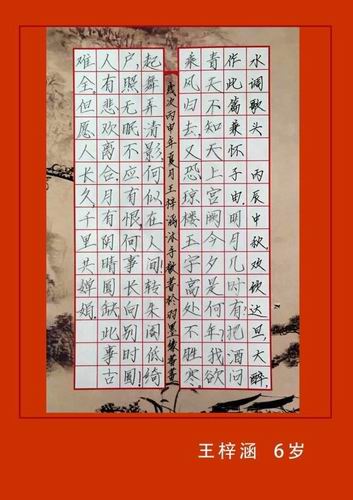 水调歌头 丙辰中秋,欢饮达旦,大醉,
作此篇兼怀子由,明月几时有?把酒问
青天不知天上宫阙今夕是何年?我欲
乘风归去,又恐琼楼玉宇高处不胜寒
岁次丙申年夏月王梓涵沐手敬书于羽墨缘书画
起舞弄清影,何似在人间!转朱阁低绮
户,照无眠不应有恨,何事长向别时圆
人有悲欢离合,月有阴晴圆缺此事古
难全但愿人长久千里共婵娟
王梓涵 6岁